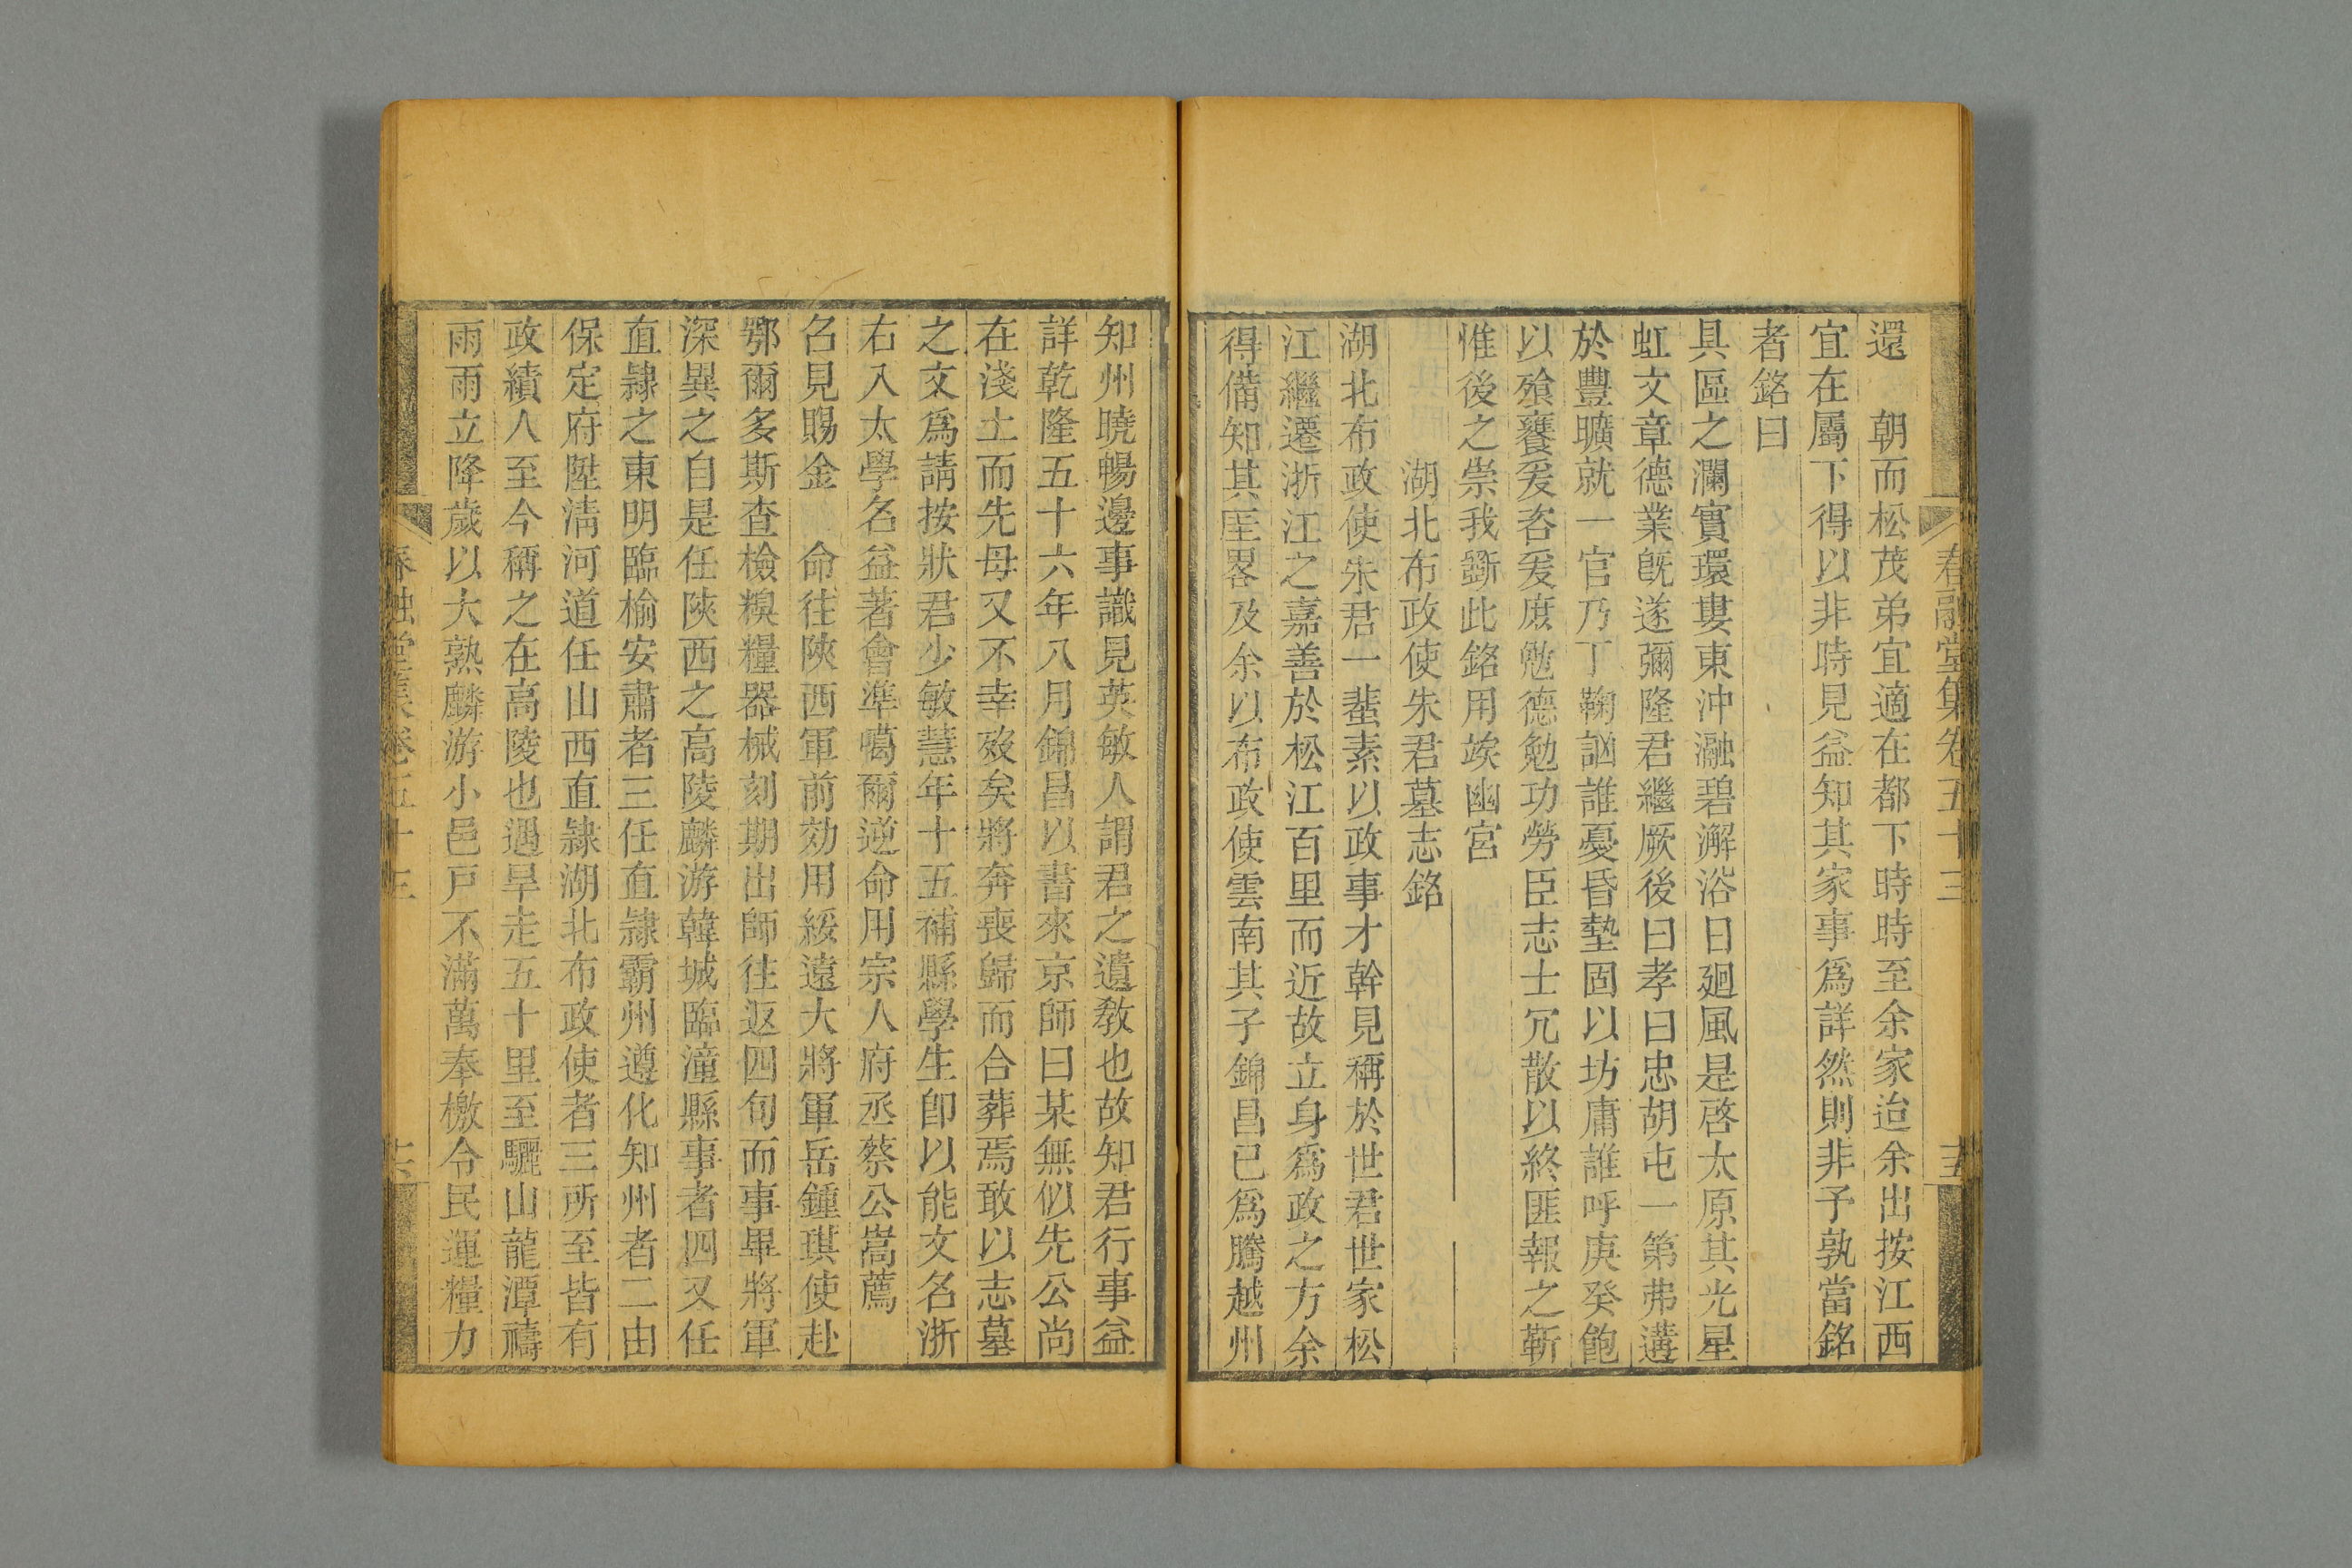 春融堂集卷五十三
還　朝而松茂弟宜適在都下時時至余家迨余出按江西
宜在屬下得以非時見益知其家事爲詳然則非予孰當銘
者銘曰
具區之瀾實環婁東沖瀜碧澥浴日廻風是啓太原其光星
虹文章德業旣遂彌隆君繼厥後曰孝曰忠胡屯一第弗遘
於豐曠就一官乃丁鞠訩誰憂昏墊固以坊庸誰呼庚癸飽
以飱饔爰咨爰度勉德勉功勞臣志士冗散以終匪報之靳
惟後之崇我斲此銘用竢幽宮
湖北布政使朱君墓志銘
湖北布政使朱君一蜚素以政事才幹見稱於世君世家松
江繼遷浙江之嘉善於松江百里而近故立身爲政之方余
得備知其至畧及余以布政使雲南其子錦昌已爲騰越州
知州曉暢邊事識見英敏人謂君之遺敎也故知君行事益
詳乾隆五十六年八月錦昌以書來京師曰某無似先公尚
在淺土而先母又不幸歿矣將奔喪歸而合葬焉敢以志墓
之文爲請按狀君少敏慧年十五補縣學生卽以能文名浙
右入太學名益著會準噶爾逆命用宗人府丞蔡公嵩薦
召見賜金　命往陝西軍前効用綏遠大將軍岳鍾琪使赴
鄂爾多斯查檢糗糧器械刻期出師往返四旬而事畢將軍
深異之自是任陝西之高陵麟游韓城臨潼縣事者四又任
直隷之東明臨榆安肅者三任直隷霸州遵化知州者二由
保定府陞淸河道任山西直隷湖北布政使者三所至皆有
政績人至今稱之在高陵也遇旱走五十里至驪山龍潭禱
雨雨立降歲以大熟麟游小邑戸不滿萬奉檄令民運糧力
春融堂集卷五十三